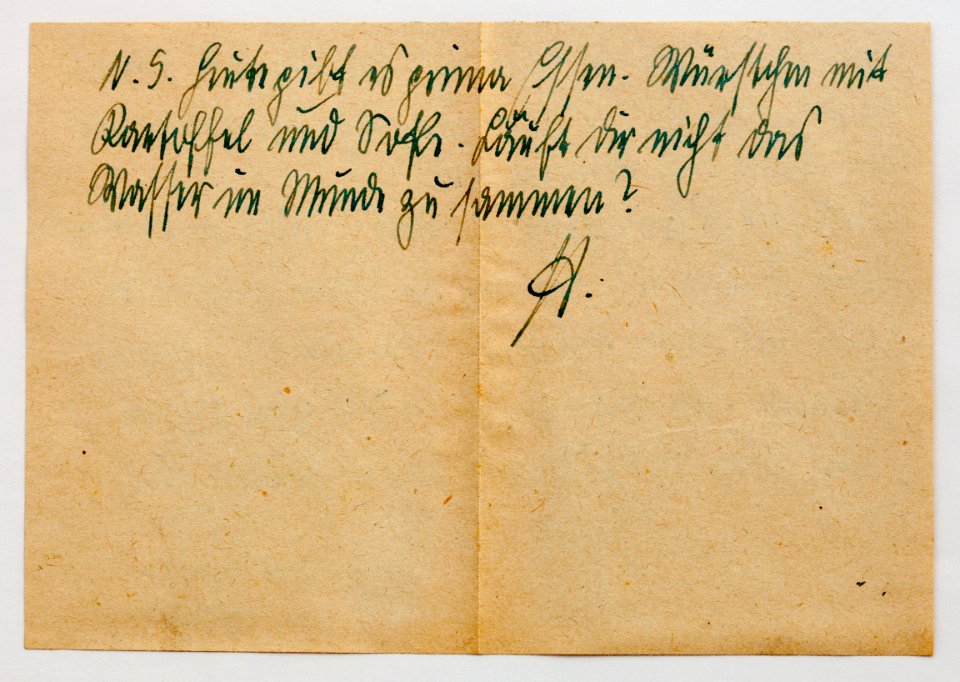 N. S. Heute gibt es prima Essen. Würstchen mit
Kartoffel und Soße. Läuft dir nicht das
Wasser im Munde zusammen?